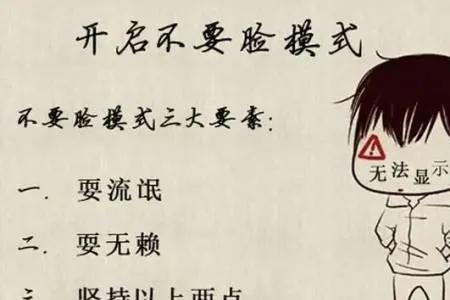 开启不要脸模式
不要脸模式三大要素:
无法显示
一. 耍流氓
二. 耍无赖
三. 坚持以上两点